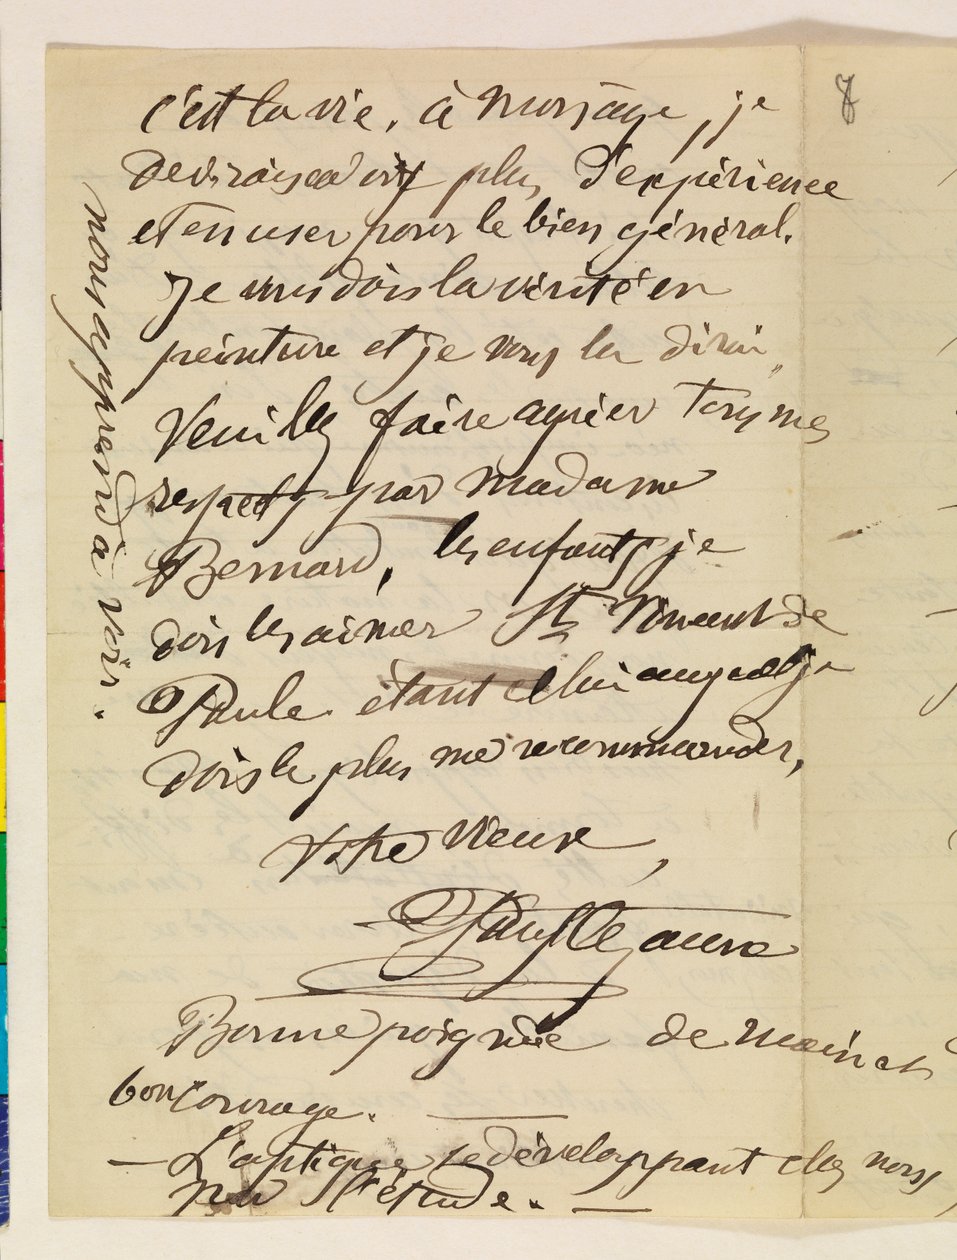 8
c'est la vie. à mon âge, je
devrais avoir plus d'expérience
et en user pour le bien général.
je vous dois la vérité en
peinture et je vous la dirai
Veuillez faire agréer tous mes
respects par madame
Bernard, les enfants, je
dois les aimer St Vincent de
Paule étant celui auquel je
dois le plus me recommander,
votre vieux,
Paul Cezanne
Bonne poignée de main et
bon courage.
— L'optique se développant chez nous
par l'étude. —
nous apprend à voir.